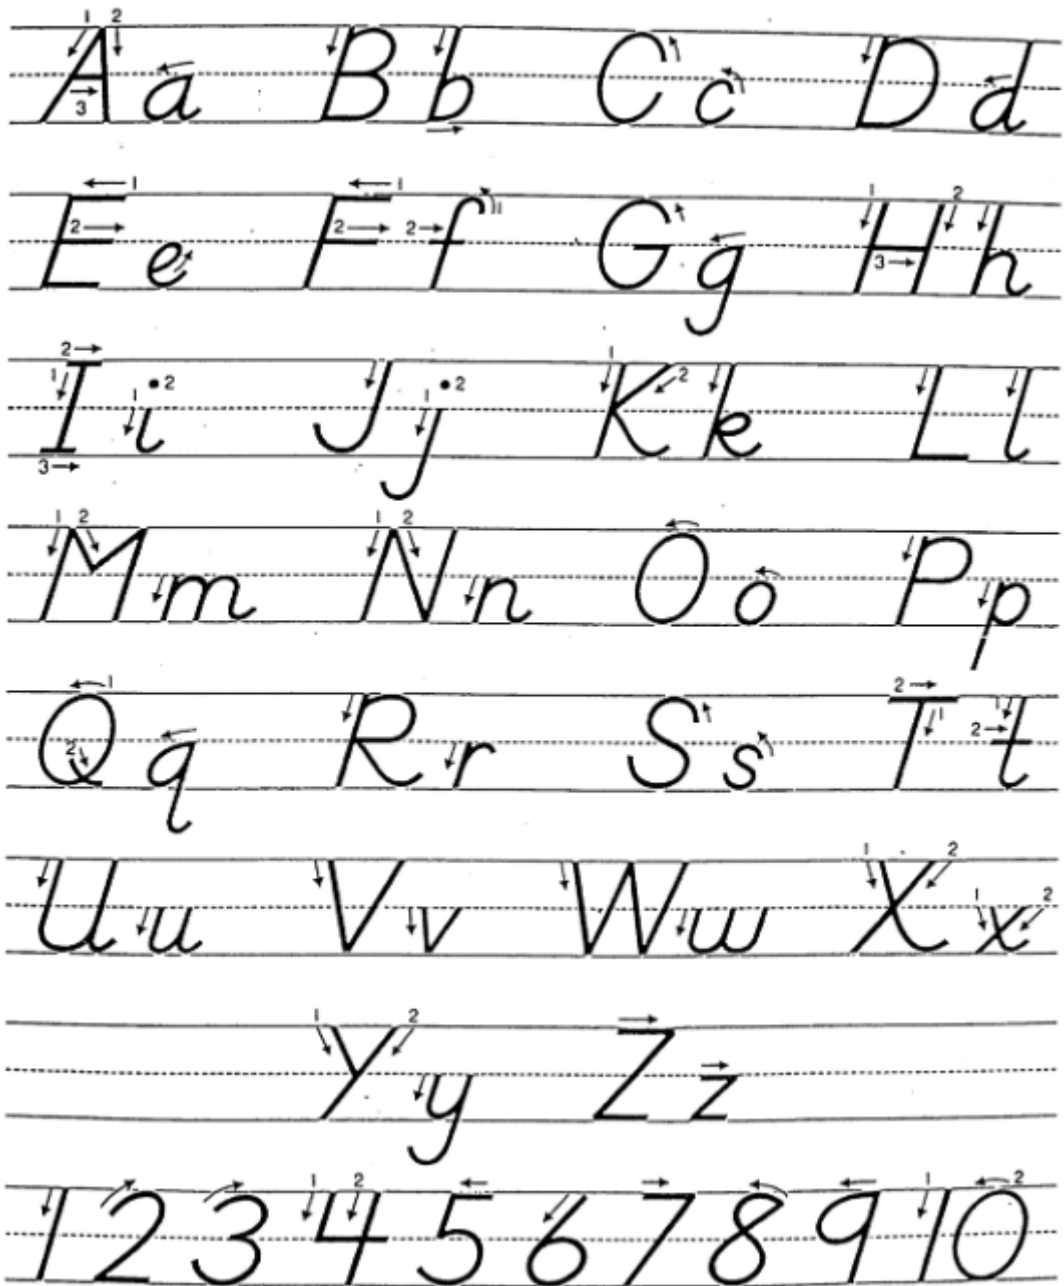 Aa Bb Cc Dd
Ee Ff Gg Hh
Ii Jj Kk Ll
Mm Nn Oo Pp
Qq Rr Ss Tt
Uu Vv Ww Xx
Yy Zz
1 2 3 4 5 6 7 8 9 10